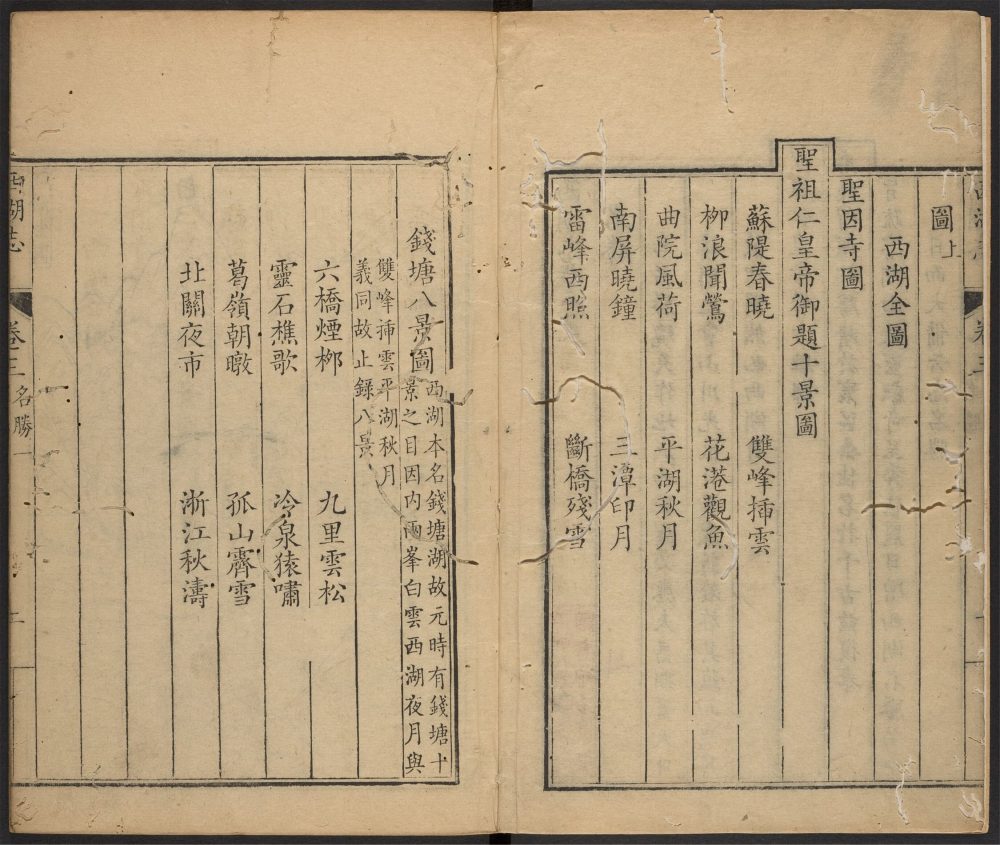 圖上
西湖全圖
聖因寺圖
聖祖仁皇帝御題十景圖
蘇隄春曉 雙峰插雲
柳浪聞鶯 花港觀魚
曲院風荷 平湖秋月
南屏曉鐘 三潭印月
雷峰西照 斷橋殘雪
錢塘八景圖
西湖本名錢塘湖故元時有錢塘十
景之目因内兩峯白雲西湖夜月與
雙峰插雲平湖秋月
義同故止錄八景
六橋煙柳 九里雲松
靈石樵歌 冷泉猿嘯
葛嶺朝暾 孤山霽雪
北關夜市 浙江秋濤
西湖志 卷三 名勝一